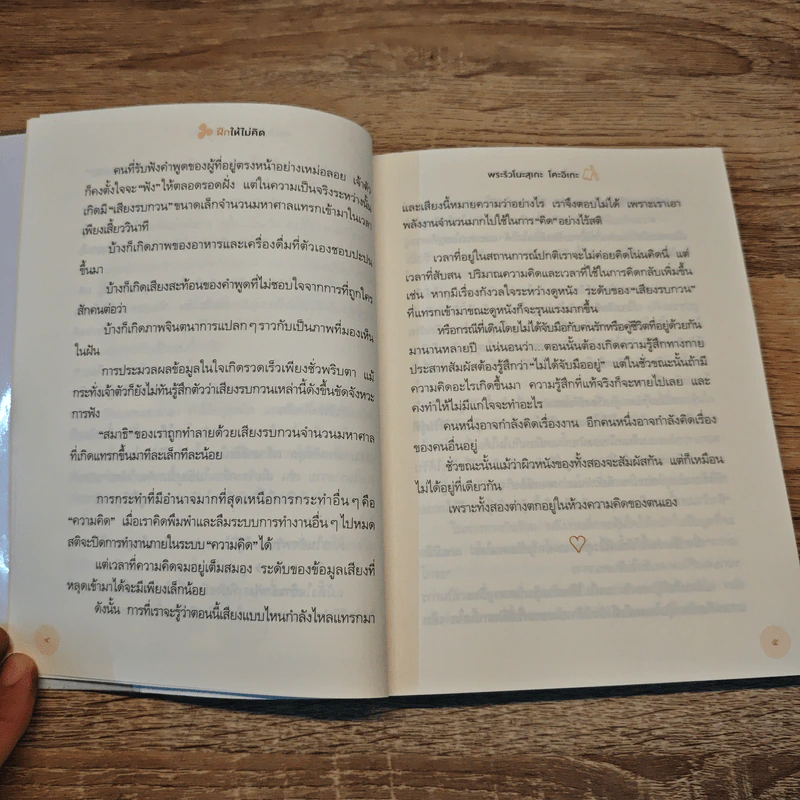 ฝึกให้ไม่คิด
คนที่รับฟังคำพูดของผู้ที่อยู่ตรงหน้าอย่างเหม่อลอย เจ้าตัว
ก็คงตั้งใจจะ “ฟัง” ให้ตลอดรอดฝั่ง แต่ในความเป็นจริงระหว่างนั้น
เกิดมี “เสียงรบกวน” ขนาดเล็กจำนวนมหาศาลแทรกเข้ามาในเวลา
เพียงเสี้ยววินาที
บ้างก็เกิดภาพของอาหารและเครื่องดื่มที่ตัวเองชอบปะปน
ขึ้นมา
บ้างก็เกิดเสียงสะท้อนของคำพูดที่ไม่ชอบใจจากการที่ถูกใคร
สักคนต่อว่า
บ้างก็เกิดภาพจินตนาการแปลกๆ ราวกับเป็นภาพที่มองเห็น
ในฝัน
การประมวลผลข้อมูลในใจเกิดรวดเร็วเพียงชั่วพริบตา แม้
กระทั่งเจ้าตัวก็ยังไม่ทันรู้สึกตัวว่าเสียงรบกวนเหล่านี้ดังขึ้นขัดจังหวะ
การฟัง
“สมาธิ” ของเราถูกทำลายด้วยเสียงรบกวนจำนวนมหาศาล
ที่เกิดแทรกขึ้นมาทีละเล็กทีละน้อย
การกระทำที่มีอำนาจมากที่สุดเหนือการกระทำอื่นๆ คือ
“ความคิด” เมื่อเราคิดพึมพำและลืมระบบการทำงานอื่นๆ ไปหมด
สติจะปิดการทำงานภายในระบบ “ความคิด” ได้
แต่เวลาที่ความคิดจมอยู่เต็มสมอง ระดับของข้อมูลเสียงที่
หลุดเข้ามาได้จะมีเพียงเล็กน้อย
ดังนั้น การที่เราจะรู้ว่าตอนนี้เสียงแบบไหนกำลังไหลแทรกมา
พระริวโนะสุเกะ โคะอิเกะ
และเสียงนี้หมายความว่าอย่างไร เราจึงตอบไม่ได้ เพราะเราเอา
พลังงานจำนวนมากไปใช้ในการ “คิด” อย่างไร้สติ
เวลาที่อยู่ในสถานการณ์ปกติเราจะไม่ค่อยคิดโน่นคิดนี่ แต่
เวลาที่สับสน ปริมาณความคิดและเวลาที่ใช้ในการคิดกลับเพิ่มขึ้น
เช่น หากมีเรื่องกังวลใจระหว่างดูหนัง ระดับของ “เสียงรบกวน”
ที่แทรกเข้ามาขณะดูหนังก็จะรุนแรงมากขึ้น
หรือกรณีที่เดินโดยไม่ได้จับมือกับคนรักหรือคู่ชีวิตที่อยู่ด้วยกัน
มานานหลายปี แน่นอนว่า...ตอนนั้นต้องเกิดความรู้สึกทางกาย
ประสาทสัมผัสต้องรู้สึกว่า “ไม่ได้จับมืออยู่” แต่ในชั่วขณะนั้นถ้ามี
ความคิดอะไรเกิดขึ้นมา ความรู้สึกที่แท้จริงก็จะหายไปเลย และ
คงทำให้ไม่มีแก่ใจจะทำอะไร
คนหนึ่งอาจกำลังคิดเรื่องงาน อีกคนหนึ่งอาจกำลังคิดเรื่อง
ของคนอื่นอยู่
ชั่วขณะนั้นแม้ว่าผิวหนังของทั้งสองจะสัมผัสกัน แต่ก็เหมือน
ไม่ได้อยู่ที่เดียวกัน
เพราะทั้งสองต่างตกอยู่ในห้วงความคิดของตนเอง